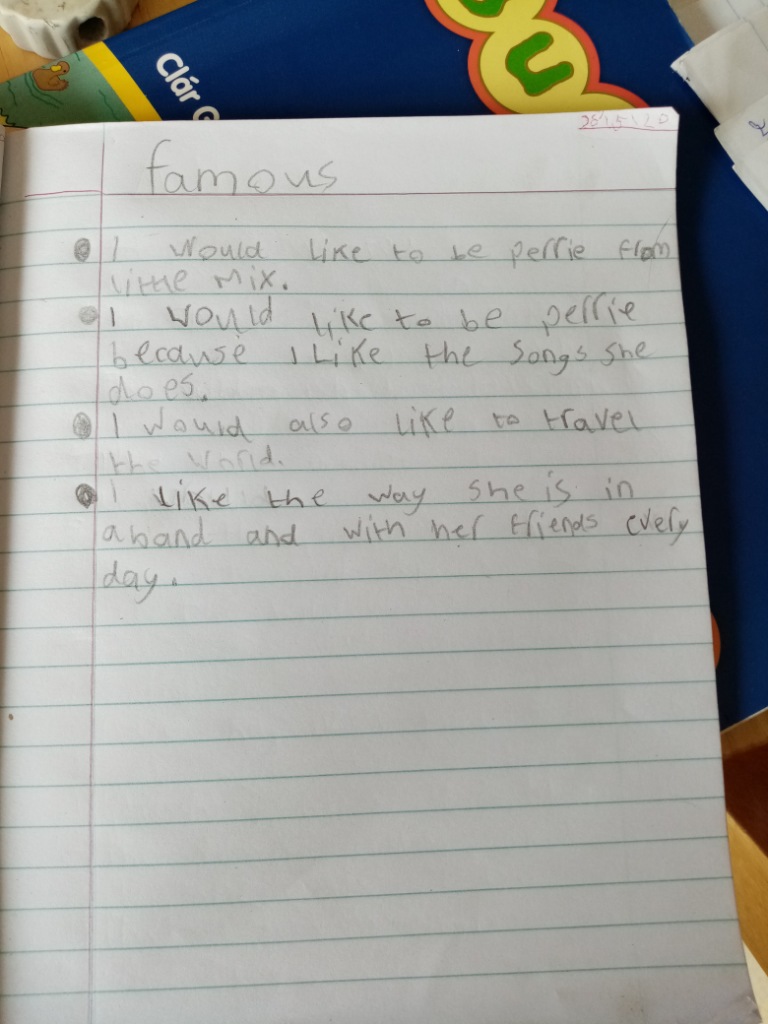 Clár
28/5/20
famous
I would like to be perrie from
little mix.
I would like to be perrie
because I Like the Songs she
does.
I would also like to travel
the world.
I like the way she is in
a band and with her friends every
day.